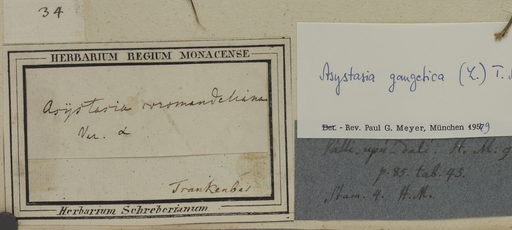 34
HERBARIUM REGIUM MONACENSE
Asÿstasia coromandeliana
Var. α
Trankenbar
Herbarium Schreberianum
Asystasia gangetica (L.) T.
Det. - Rev. Paul G. Meyer, München 1959
H. M.
p. 85. tab. 43.
4. H.